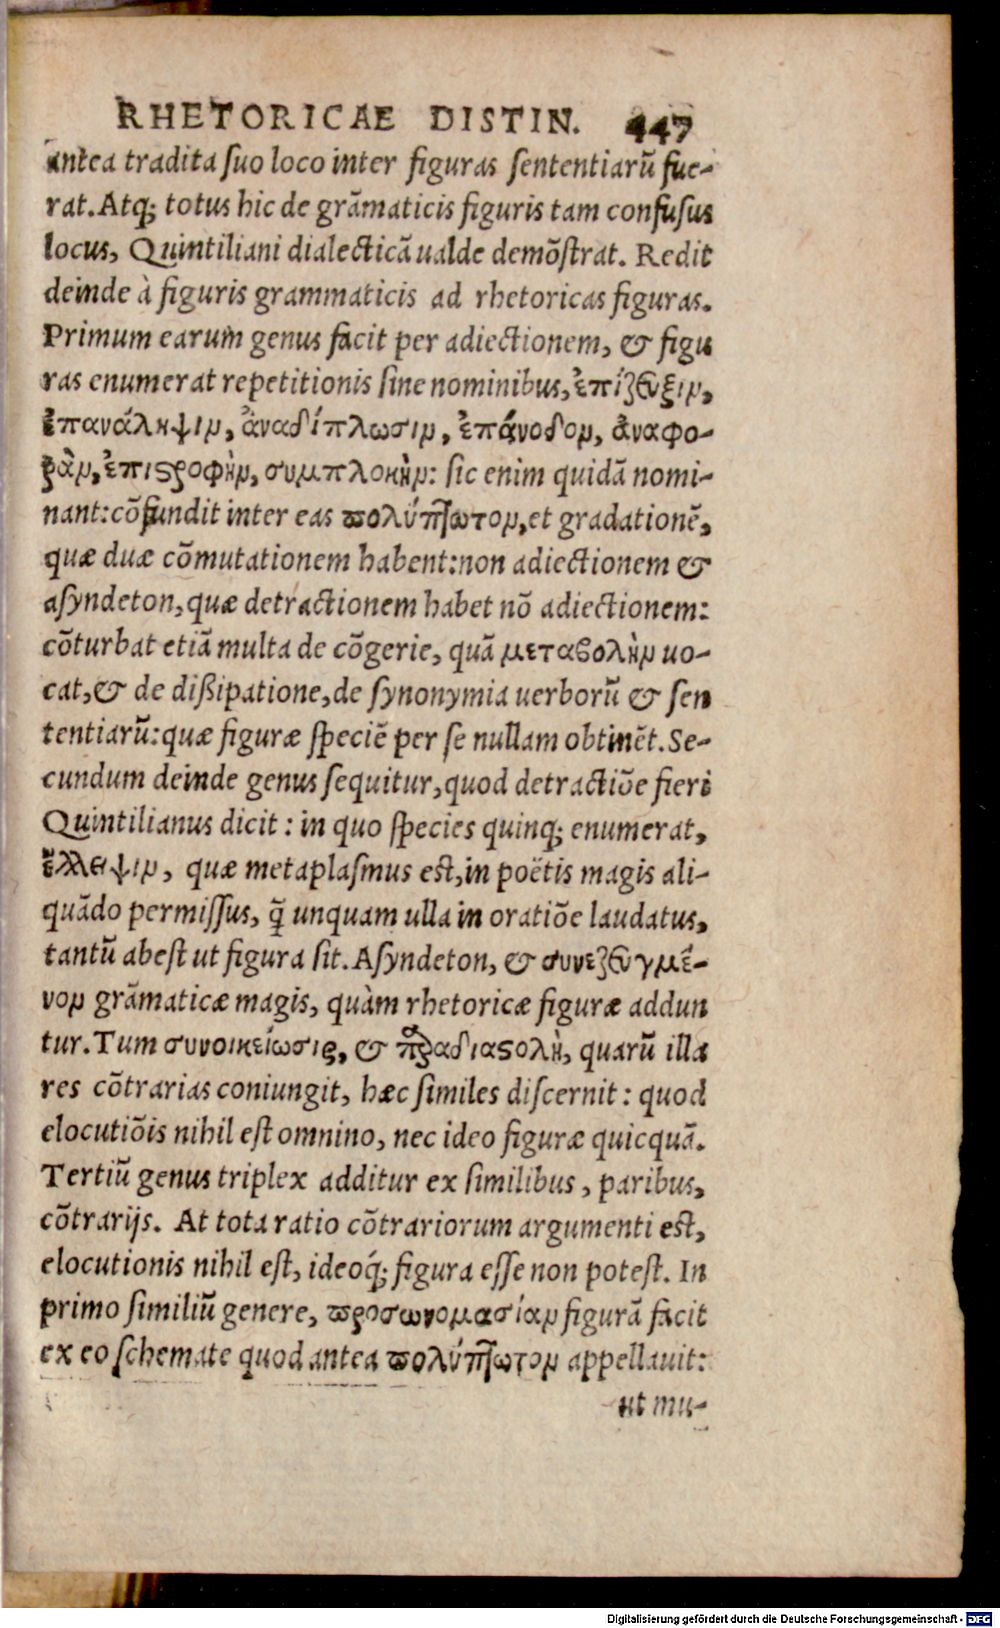 RHETORICAE DISTIN. 447
antea tradita suo loco inter figuras sententiarũ fue-
rat. Atq; totus hic de grãmaticis figuris tam confusus
locus, Quintiliani dialecticã ualde demõstrat. Redit
deinde à figuris grammaticis ad rhetoricas figuras.
Primum earum genus facit per adiectionem, & figu
ras enumerat repetitionis sine nominibus, ἐπίζευξιν,
ἐπανάληψιν, ἀναδίπλωσιν, ἐπάνοδον, ἀναφο-
ρὰν, ἐπιςροφὴν, συμπλοκὴν: sic enim quidã nomi-
nant: cõfundit inter eas πολύπτωτον, et gradationẽ,
quæ duæ cõmutationem habent: non adiectionem &
asyndeton, quæ detractionem habet nõ adiectionem:
cõturbat etiã multa de cõgerie, quã μεταβολὴν uo-
cat, & de dißipatione, de synonymia uerborũ & sen
tentiarũ: quæ figuræ speciẽ per se nullam obtinẽt. Se-
cundum deinde genus sequitur, quod detractiõe fieri
Quintilianus dicit: in quo species quinq; enumerat,
ἔλλειψιν, quæ metaplasmus est, in poëtis magis ali-
quãdo permissus, q̃ unquam ulla in oratiõe laudatus,
tantũ abest ut figura sit. Asyndeton, & συνεζευγμέ-
νον grãmaticæ magis, quàm rhetoricæ figuræ addun
tur. Tum συνοικείωσις, & παραδιαςολὴ, quarũ illa
res cõtrarias coniungit, hæc similes discernit: quod
elocutiõis nihil est omnino, nec ideo figuræ quicquã.
Tertiũ genus triplex additur ex similibus, paribus,
cõtrarijs. At tota ratio cõtrariorum argumenti est,
elocutionis nihil est, ideoq́; figura esse non potest. In
primo similiũ genere, προσωνομασίαν figurã facit
ex eo schemate quod antea πολύπτωτον appellauit:
ut mu-
Digitalisierung gefördert durch die Deutsche Forschungsgemeinschaft - DFG